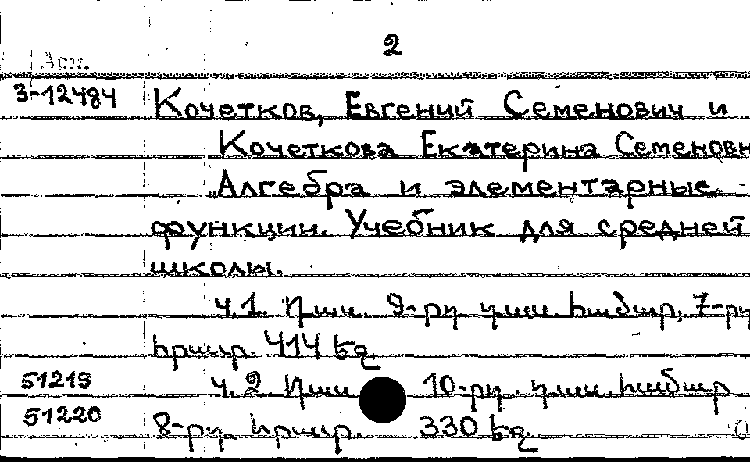 2
3-12484 Кочетков, Евгений Семенович и
Кочеткова Екатерина Семеновн
Алгебра и элементарные
функции. Учебник для средней
школы.
ч.1. 9-րդ դաս. համար, 7-րդ
հրատ. 414 եզ
51219 ч.2 10-րդ. դաս. համար
51220 8-րդ. հրատ. 330 եզ.